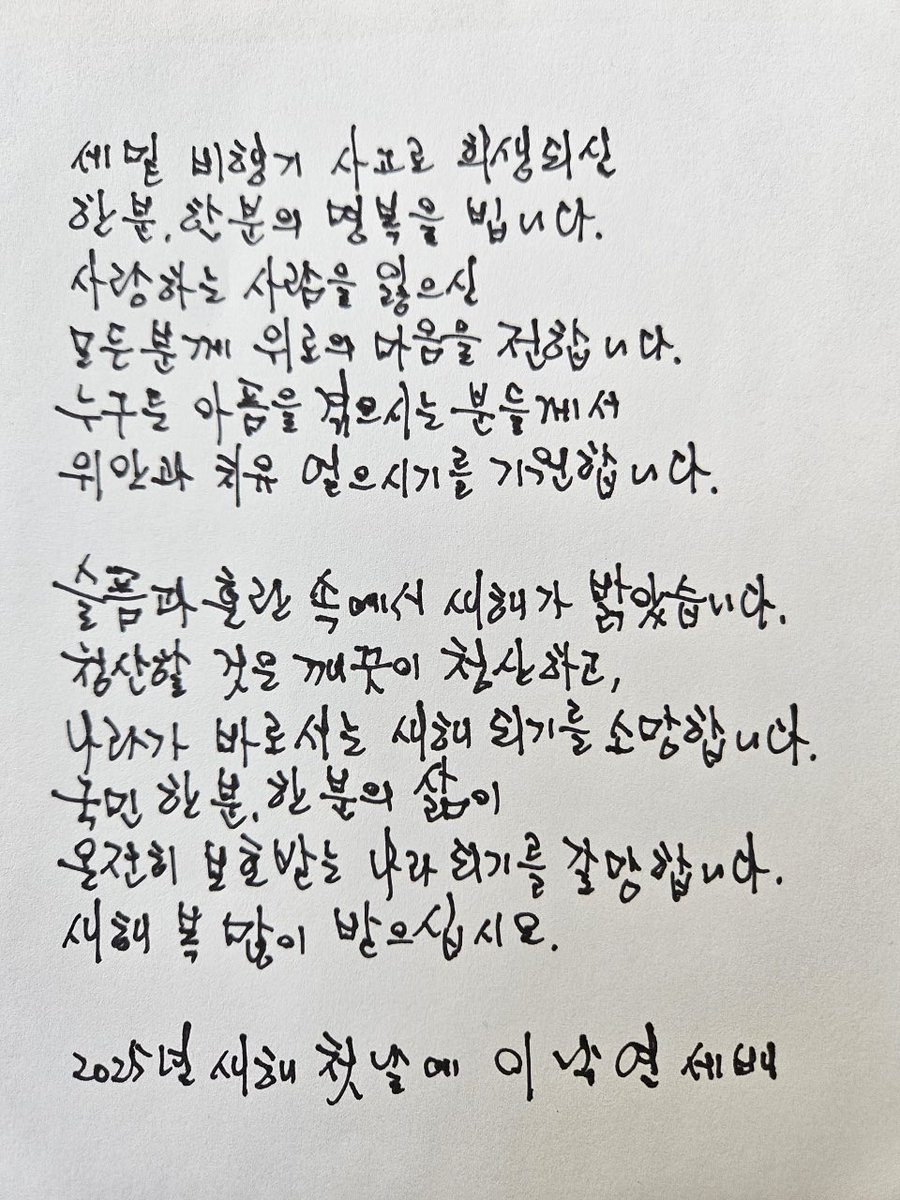 세밑 비행기 사고로 희생되신
한분, 한분의 명복을 빕니다.
사랑하는 사람을 잃으신
모든분께 위로의 마음을 전합니다.
누구든 아픔을 겪으시는 분들께서
위안과 치유 얻으시기를 기원합니다.

슬픔과 혼란 속에서 새해가 밝았습니다.
청산할 것은 깨끗이 청산하고,
나라가 바로서는 새해 되기를 소망합니다.
국민 한분, 한분의 삶이
온전히 보호받는 나라 되기를 갈망합니다.
새해 복 많이 받으십시오.

2025년 새해 첫날에 이낙연 세배